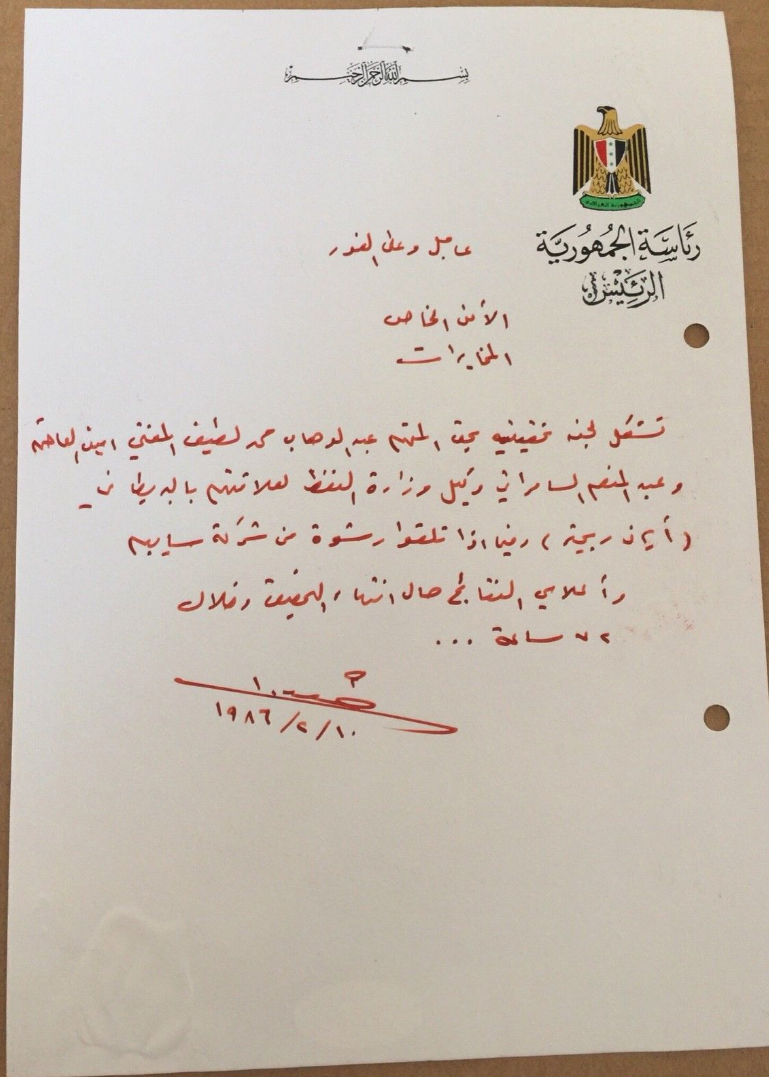 بسم الله الرحمن الرحيم
رئاسة الجمهورية
الرئيس
عاجل وعلى الفور
الأمن الخاص
المخابرات
تشكل لجنه تحقيقيه بحق المتهم عبد الوهاب محمد لطيف المفتي امين العاصمه
وعبد المنعم السامرائي وكيل وزارة النفط لعلاقتهم بالبريطاني
(أيان ريجتر) وفيما اذا تلقوا رشوة من شركة سايبم
وأعلامي النتائج حال انتهاء التحقيق وخلال
٧٢ ساعة ...
١٩٨٦/٢/١٠